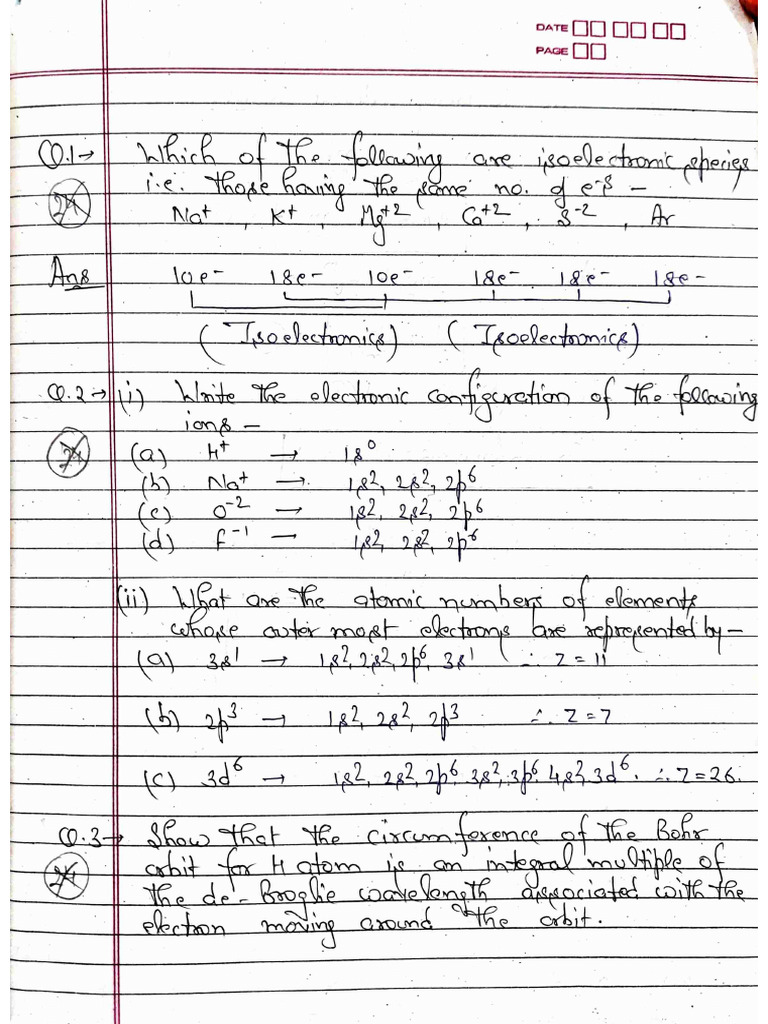 DATE
PAGE
Q.1→ Which of the following are isoelectronic species
i.e. those having the same no. of e-s –
Na+ , K+ , Mg+2 , Ca+2 , S-2 , Ar
Ans 10e- 18e- 10e- 18e- 18e- 18e-
(Isoelectronics) (Isoelectronics)
Q.2→ (i) Write the electronic configuration of the following
ions –
(a) H+ → 1s0
(b) Na+ → 1s2, 2s2, 2p6
(c) O-2 → 1s2, 2s2, 2p6
(d) F-1 → 1s2, 2s2, 2p6
(ii) What are the atomic numbers of elements
whose outer most electrons are represented by –
(a) 3s1 → 1s2, 2s2, 2p6, 3s1 ∴ Z = 11
(b) 2p3 → 1s2, 2s2, 2p3 ∴ Z = 7
(c) 3d6 → 1s2, 2s2, 2p6, 3s2, 3p6, 4s2, 3d6. ∴ Z = 26.
Q.3→ Show that the circumference of the Bohr
orbit for H atom is an integral multiple of
the de-Broglie wavelength associated with the
electron moving around the orbit.